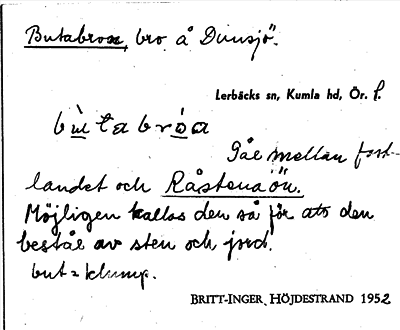 Butabron, bro å Dunsjö.
Lerbäcks sn, Kumla hd, Ör. l.
bùtabróa
Går mellan fast-
landet och Råstenaön.
Möjligen kallas den så för att den
består av sten och jord.
but = klump.
BRITT-INGER HÖJDESTRAND 1952